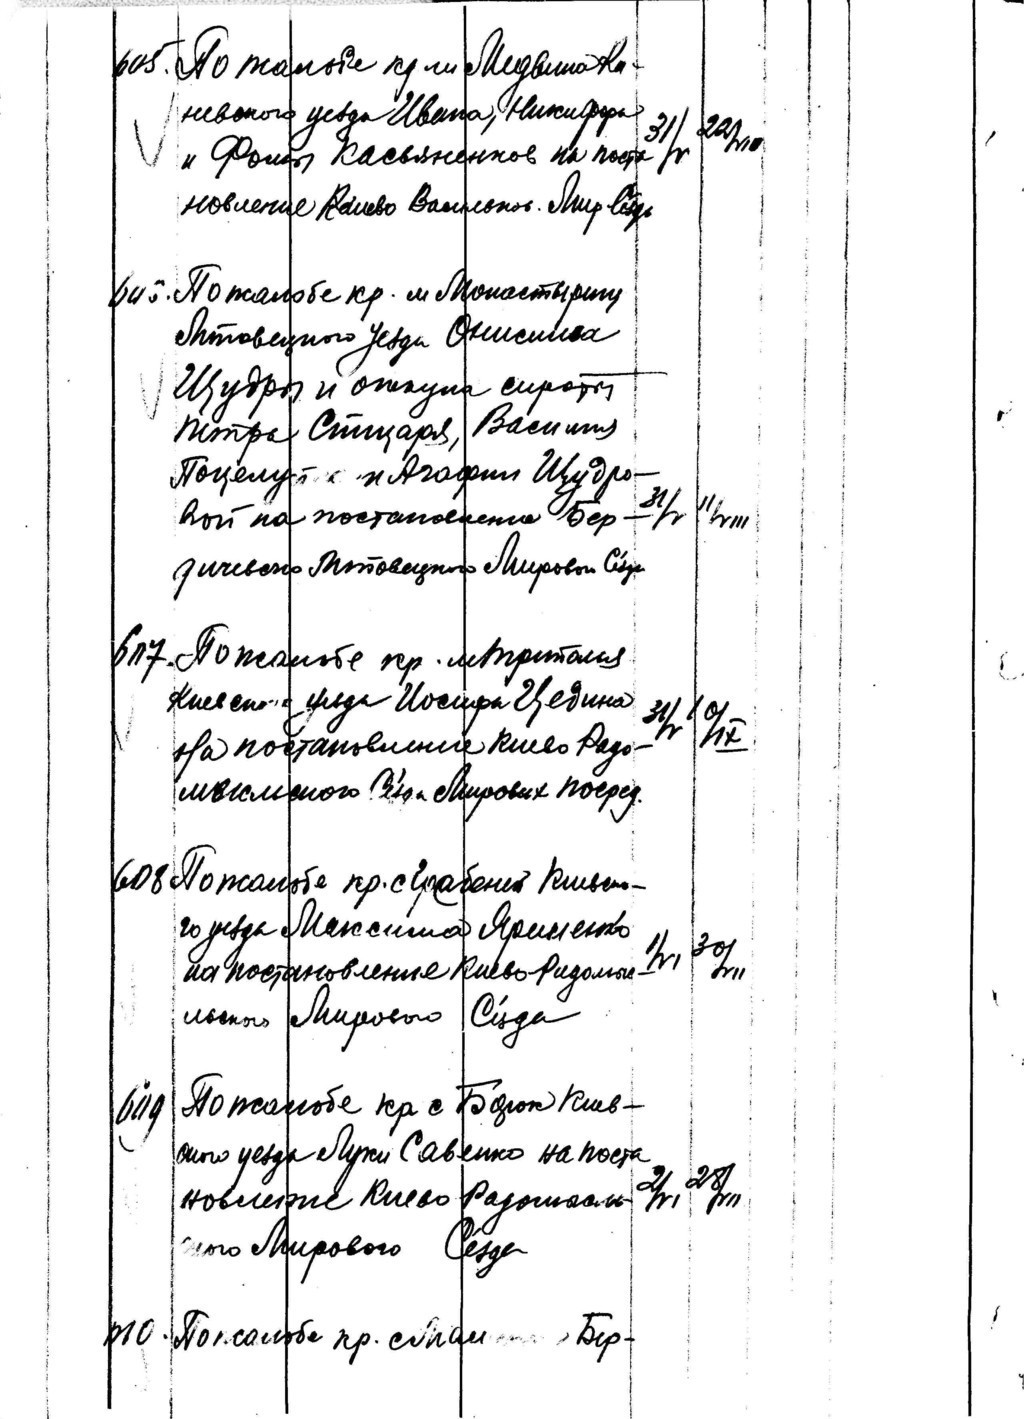 605. По жалобе кр м Медвина Ка-
невского уезда Ивана, Никифора
и Фомы Касьяненков на поста 31/V 22/VIII
новление Киево Васильков. Мир Сезда
По жалобе кр. м Монастырищ
Липовецкого уезда Онисима
Щудры и опекуна сироты
Петра Стицаря, Василия
Поцелуй и Агафии Щудро-
вой на постановление Бер- 31/V 11/VIII
дичевско Липовецкого Мирового Сезда
607. По жалобе кр. м Триполия
Киевского уезда Иосифа Цедина 31/V 10/IX
На постановление Киево Радо-
мысльского Сезда Мировых посред.
608 По жалобе кр. с Киевско-
го уезда Максима Яременко
на постановление Киево-Радомы- 1/VI 30/VII
льского Мирового Сезда
609 По жалобе кр с Киев-
ского уезда Луки Савенко на поста
новление Киево Радомысль 2/VI 28/VII
ского Мирового Сезда
610. По жалобе кр. с Бер-